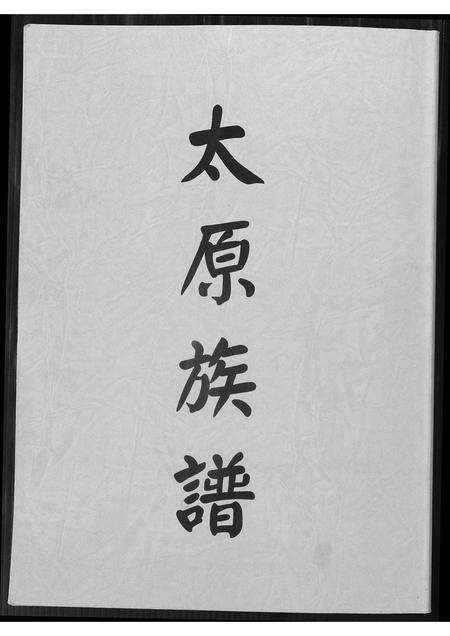 太原族譜